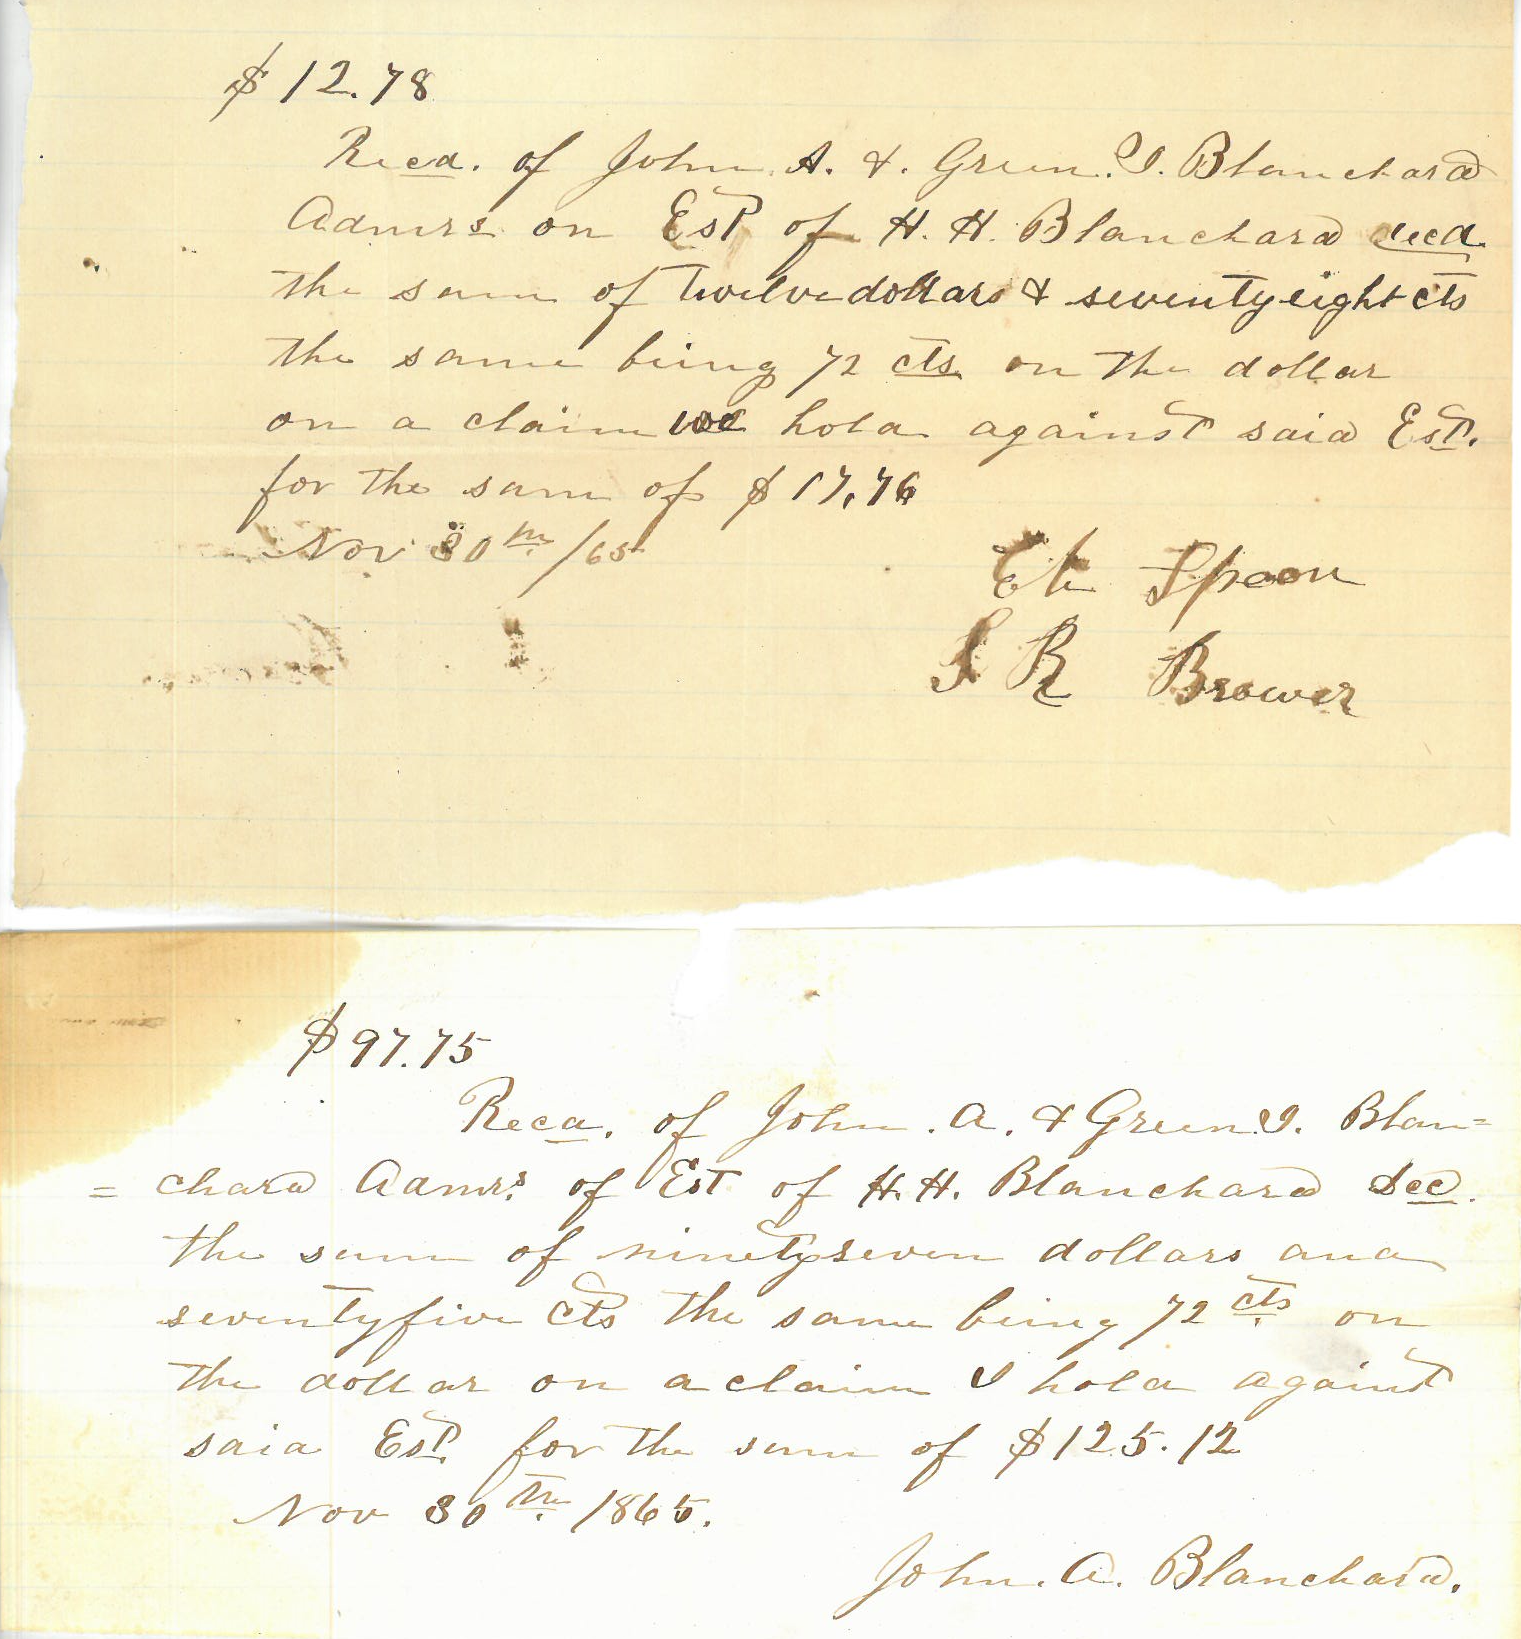 $12.78
Recd. of John. A. &. Green. I. Blanchard
Admrs on Est of H. H. Blanchard decd.
the sum of Twelve dollars & seventy eight cts
the same being 72 cts. on the dollar
on a claim we hold against said Est.
for the sum of $17.76
Nov 30th /65
Eli Spoon
S R Brower
$97.75
Recd. of John. A. & Green. I. Blan=
=chard Admrs. of Est of H. H. Blanchard Dec.
the sum of ninetyseven dollars and
seventyfive cts the same being 72 cts. on
the dollar on a claim I hold against
said Est. for the sum of $125.12
Nov 30th. 1865.
John. A. Blanchard.